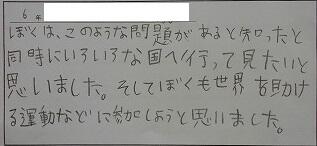 6年
ぼくは、このような問題があると知ったと
同時にいろいろな国へ行って見たいと
思いました。そしてぼくも世界を助け
る運動などに参加しようと思いました。